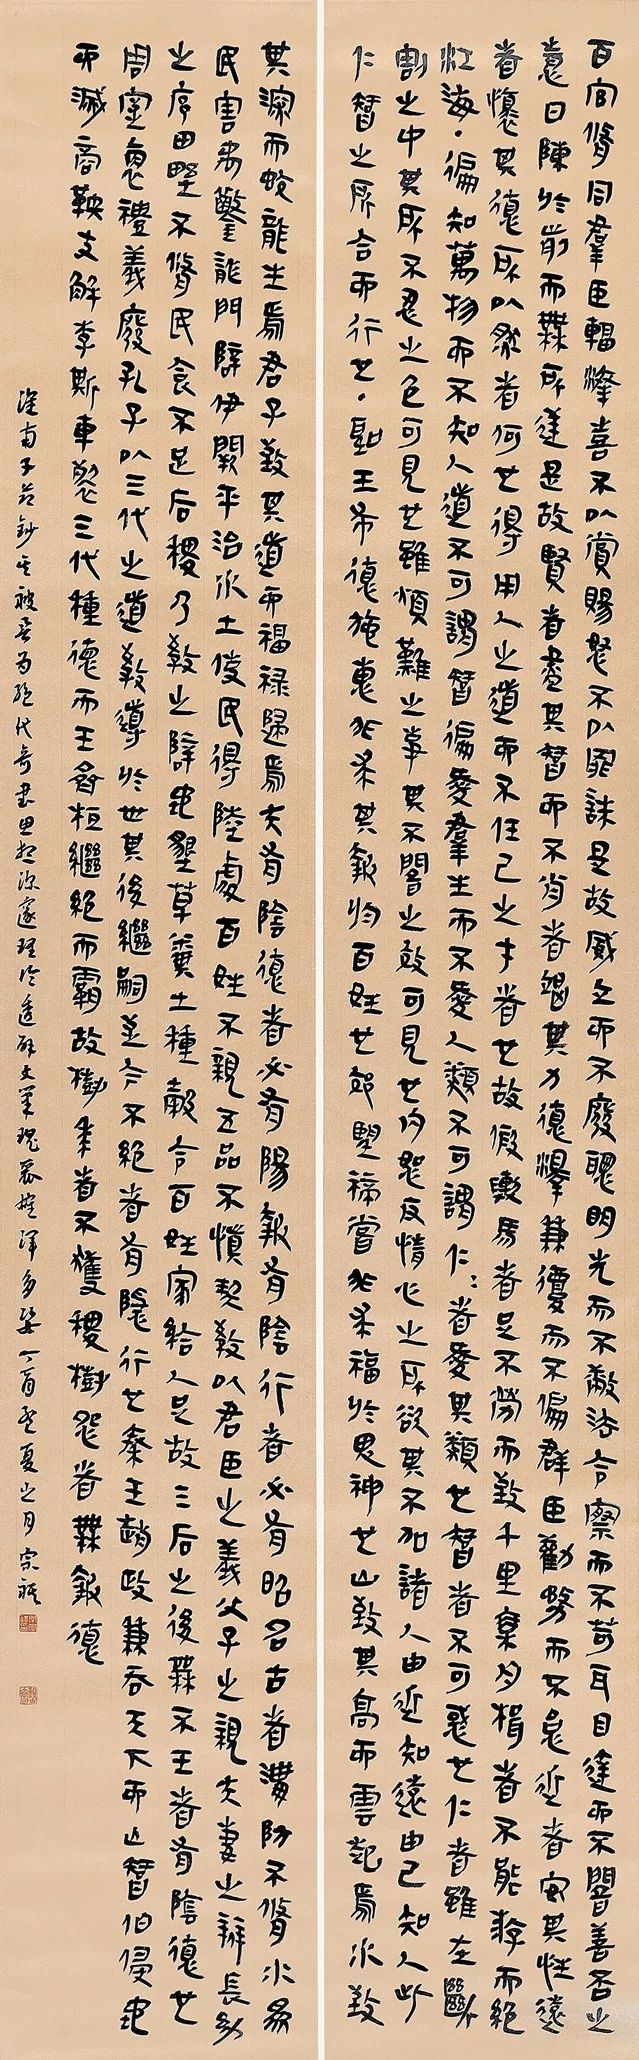 百官脩同群臣輻湊喜不以賞賜怒不以罪誅是故威立而不廢聰明光而不敝法令察而不苛耳目達而不闇善否之
意日陳於前而無所逆是故賢者盡其智而不肖者竭其力德澤兼覆而不偏群臣勸務而不怠近者安其性遠
者懷其德所以然者何也得用人之道而不任己之才者也故假輿馬者足不勞而致千里乘舟楫者不能游而絕
江海徧知萬物而不知人道不可謂智徧愛群生而不愛人類不可謂仁〻者愛其類也智者不可惑也仁者雖在斷
割之中其所不忍之色可見也雖煩難之事其不闇之效可見也內恕反情心之所欲其不加諸人由近知遠由己知人此
仁智之所合而行也聖王布德施惠非求其報於百姓也郊望禘嘗非求福於鬼神也山致其高而雲起焉水致
其深而蛟龍生焉君子致其道而福祿歸焉夫有陰德者必有陽報有陰行者必有昭名古者溝防不脩水為
民害禹鑿龍門辟伊闕平治水土使民得陸處百姓不親五品不慎契教以君臣之義父子之親夫妻之辨長幼
之序田野不脩民食不足后稷乃教之辟地墾草糞土種穀令百姓家給人足故三后之後無不王者有陰德也
周室衰禮義廢孔子以三代之道教導於世其後繼嗣至今不絕者有隱行也秦王趙政兼吞天下而亡智伯侵地
而滅商鞅支解李斯車裂三代種德而王齊桓繼絕而霸故樹黍者不獲稷樹怨者無報德
淮南子節鈔 為絕代奇書思想深邃理論透辟文筆瑰麗 多姿丁酉孟夏之月宗祺